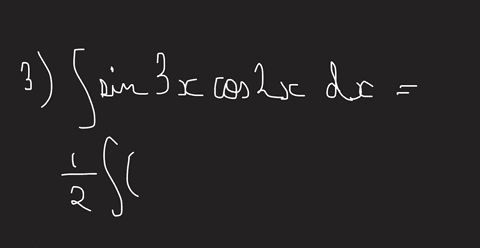 3) ∫ sin 3x cos 2x dx =
1/2 ∫ (